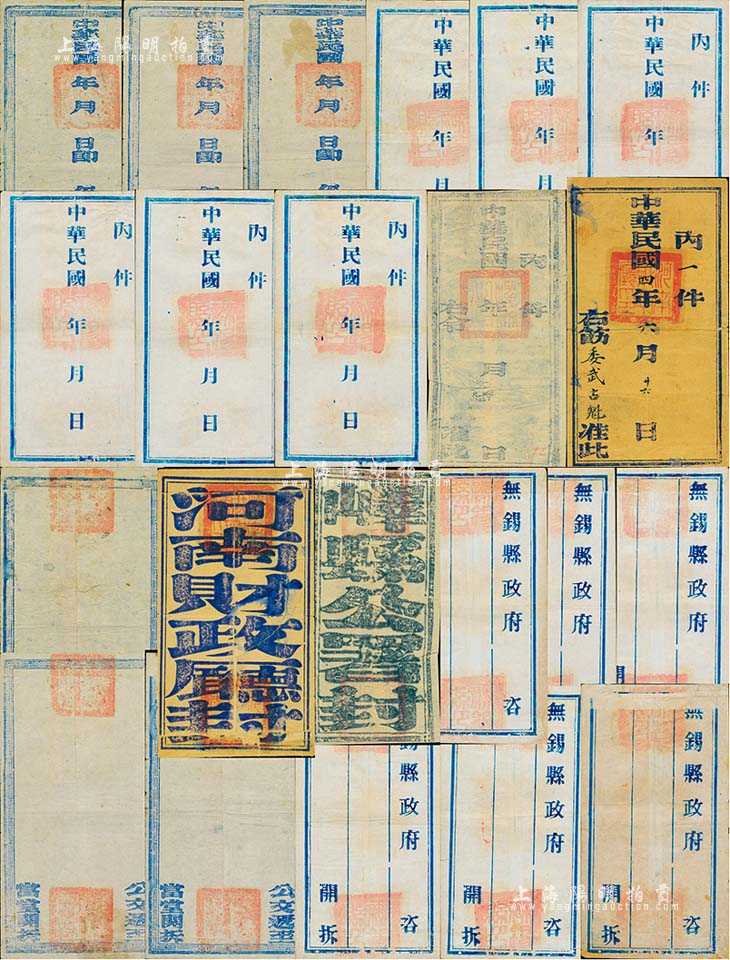 上海陽明拍賣
www.yangmingauction.com
中華民國
年
月
日
中華民國
年
月
日
中華民國
年
月
日
中華民國 年 月
中華民國 年 月
內件
中華民國 年 月
內件
中華民國 年 月 日
內件
中華民國 年 月 日
內件
中華民國 年 月 日
內件
中華民國 年 月 日
右
內一件
中華民國四年六月廿六日
右飭委武占魁准此
上海陽明拍賣
www.yangmingauction.com
河南財政廳封
縣公署封
無錫縣政府 咨
無錫縣政府
無錫縣政府
開
公文遞至
當堂開拆
公文遞至
當堂開拆
錫縣政府 咨
開拆
無錫縣政府 咨
開拆
無錫縣政府 咨
開拆
上海陽明拍賣
www.yangmingauction.com